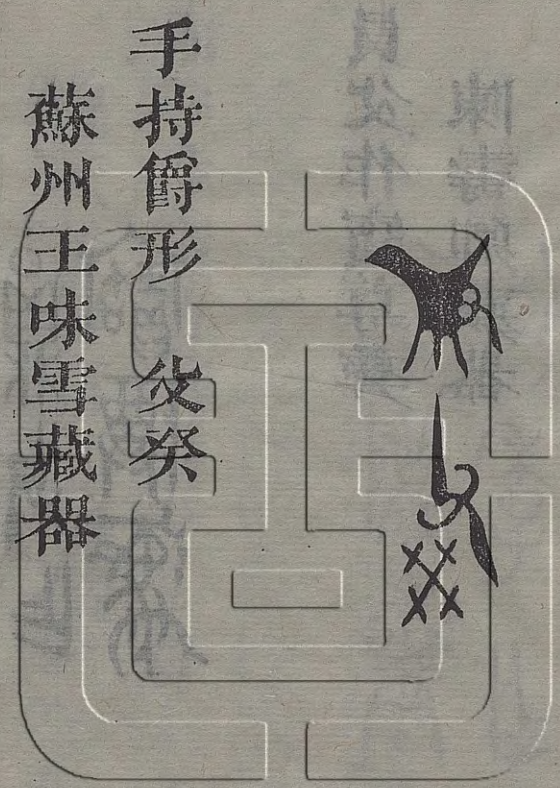 父癸
手持爵形　父癸
蘇州王味雪藏器